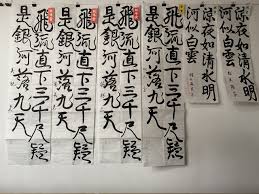 涼夜如清水明
河似白雲
涼夜如清水明
河似白雲
飛流直下三千尺疑
是銀河落九天
飛流直下三千尺疑
是銀河落九天
飛流直下三千尺疑
是銀河落九天
飛流直下三千尺疑
是銀河落九天